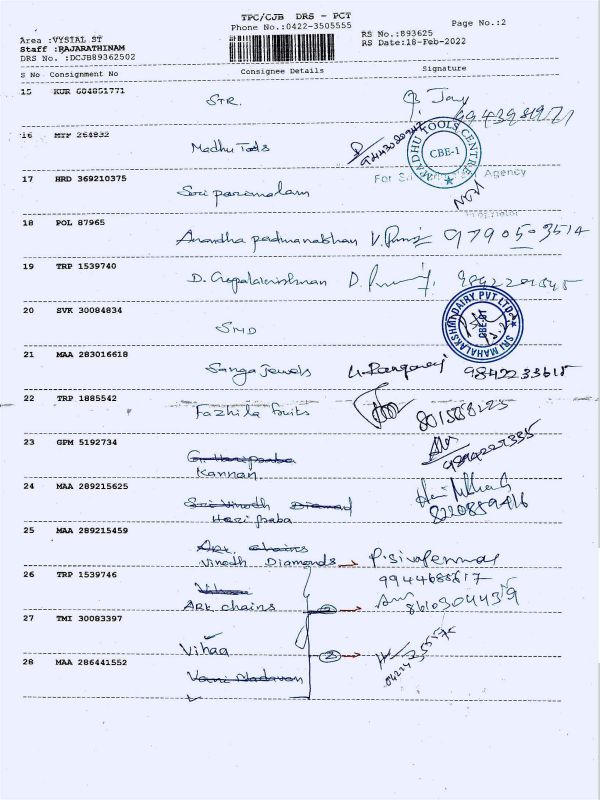 TPC/CJB DRS - PCT
Phone No.:0422-3505555
Page No.:2
Area :VYSIAL ST
Staff :RAJARATHINAM
DRS No. :DCJB89362502
RS No.:893625
RS Date:18-Feb-2022
S No Consignment No Consignee Details Signature
15 KUR 604851771 STR. Jay
16 MTP 264832 Madhu Tools
MADHU TOOLS CENTRE CBE-1
17 HRD 369210375 Sori parimalam
For Sri Agency
18 POL 87965 Anandha padmanabhan 97905-03514
19 TRP 1539740 D. Gopalakrishnan
20 SVK 30084834 SMD
SRI MAHALAKSHMI DAIRY PVT LTD
21 MAA 283016618 Sanga Jewels 9842233615
22 TRP 1885542 Fazhila fruits 8015058225
23 GPM 5192734 G. Hariprabha
Kannan
24 MAA 289215625 Sri Vinoth Diamond
Hari praba
25 MAA 289215459 ARK chains
Vinoth Diamonds
26 TRP 1539746
ARK chains 1 8610304439
27 TMI 30083397 Vihaa 2
28 MAA 286441552